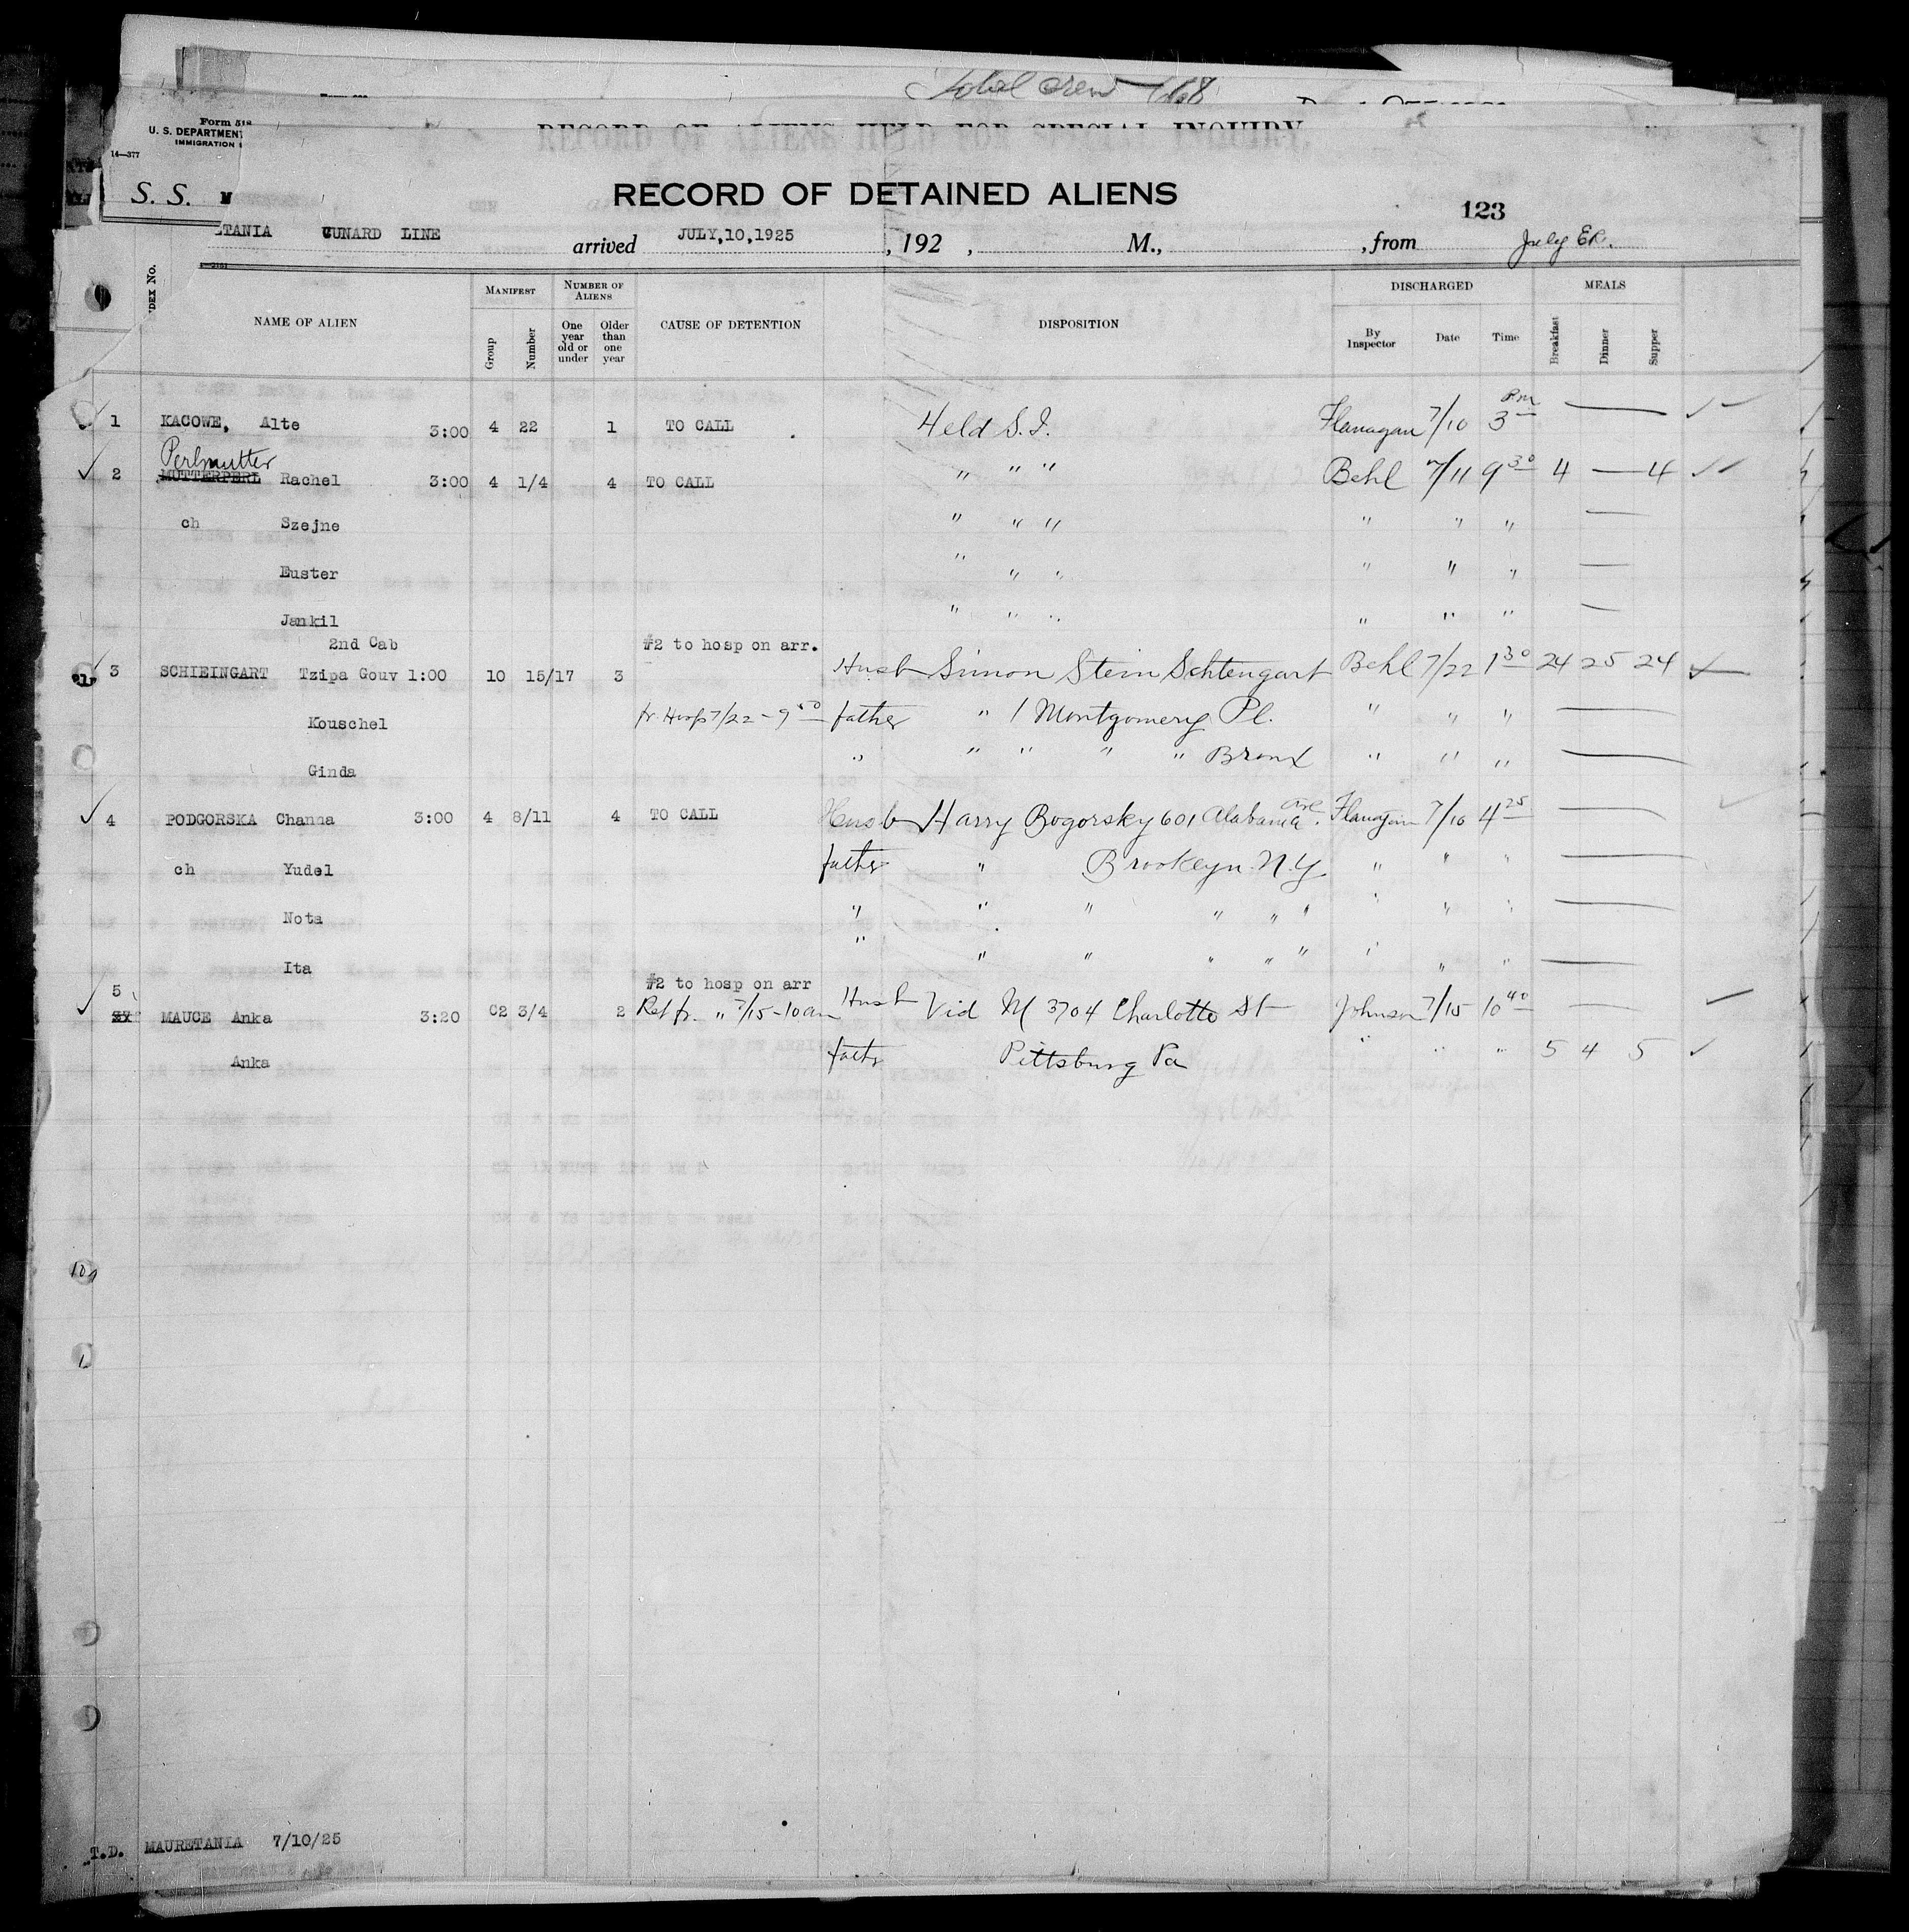 Total crew 768
Form 518
U. S. DEPARTMENT
IMMIGRATION
14—377
RECORD OF ALIENS HELD FOR SPECIAL INQUIRY.
S. S. M
RECORD OF DETAINED ALIENS
123
TANIA CUNARD LINE arrived JULY,10,1925 , 192 , M., , from July
NAME OF ALIEN MANIFEST Group Number NUMBER OF ALIENS One year old or under Older than one year CAUSE OF DETENTION DISPOSITION DISCHARGED By Inspector Date Time MEALS Breakfast Dinner Supper
1 KACOWE, Alte 3:00 4 22 1 TO CALL Held S.I. Flanagan 7/10 3 PM —
Perlmutter
2 MUTTERPERL Rachel 3:00 4 1/4 4 TO CALL " " " Behl 7/11 9 30 4 — 4
ch Szejne " " " " " " —
Euster " " " " " " —
Jankil " " " " " " —
2nd Cab #2 to hosp on arr.
3 SCHIEINGART Tzipa Gouv 1:00 10 15/17 3 Husb Simon Stein Schtengart Behl 7/22 1 30 24 25 24
Kouschel fr. Hosp 7/22 - 9 50 father " 1 Montgomery Pl. " " " —
Ginda " " " " " Bronx " " " —
4 PODGORSKA Channa 3:00 4 8/11 4 TO CALL Husb Harry Bogorsky 601 Alabama Ave. Flanagan 7/10 4 25 —
ch Yudel father " Brooklyn N.Y. " " " —
Nota " " " " " " " " " —
Ita " " " " " " " " " —
5 #2 to hosp on arr
MAUCE Anka 3:20 C2 3/4 2 Ret fr. " 7/15-10am Husb Vid M 3704 Charlotte St Johnson 7/15 10 40 —
Anka father Pittsburg Pa " " " 5 4 5
T.D. MAURETANIA 7/10/25